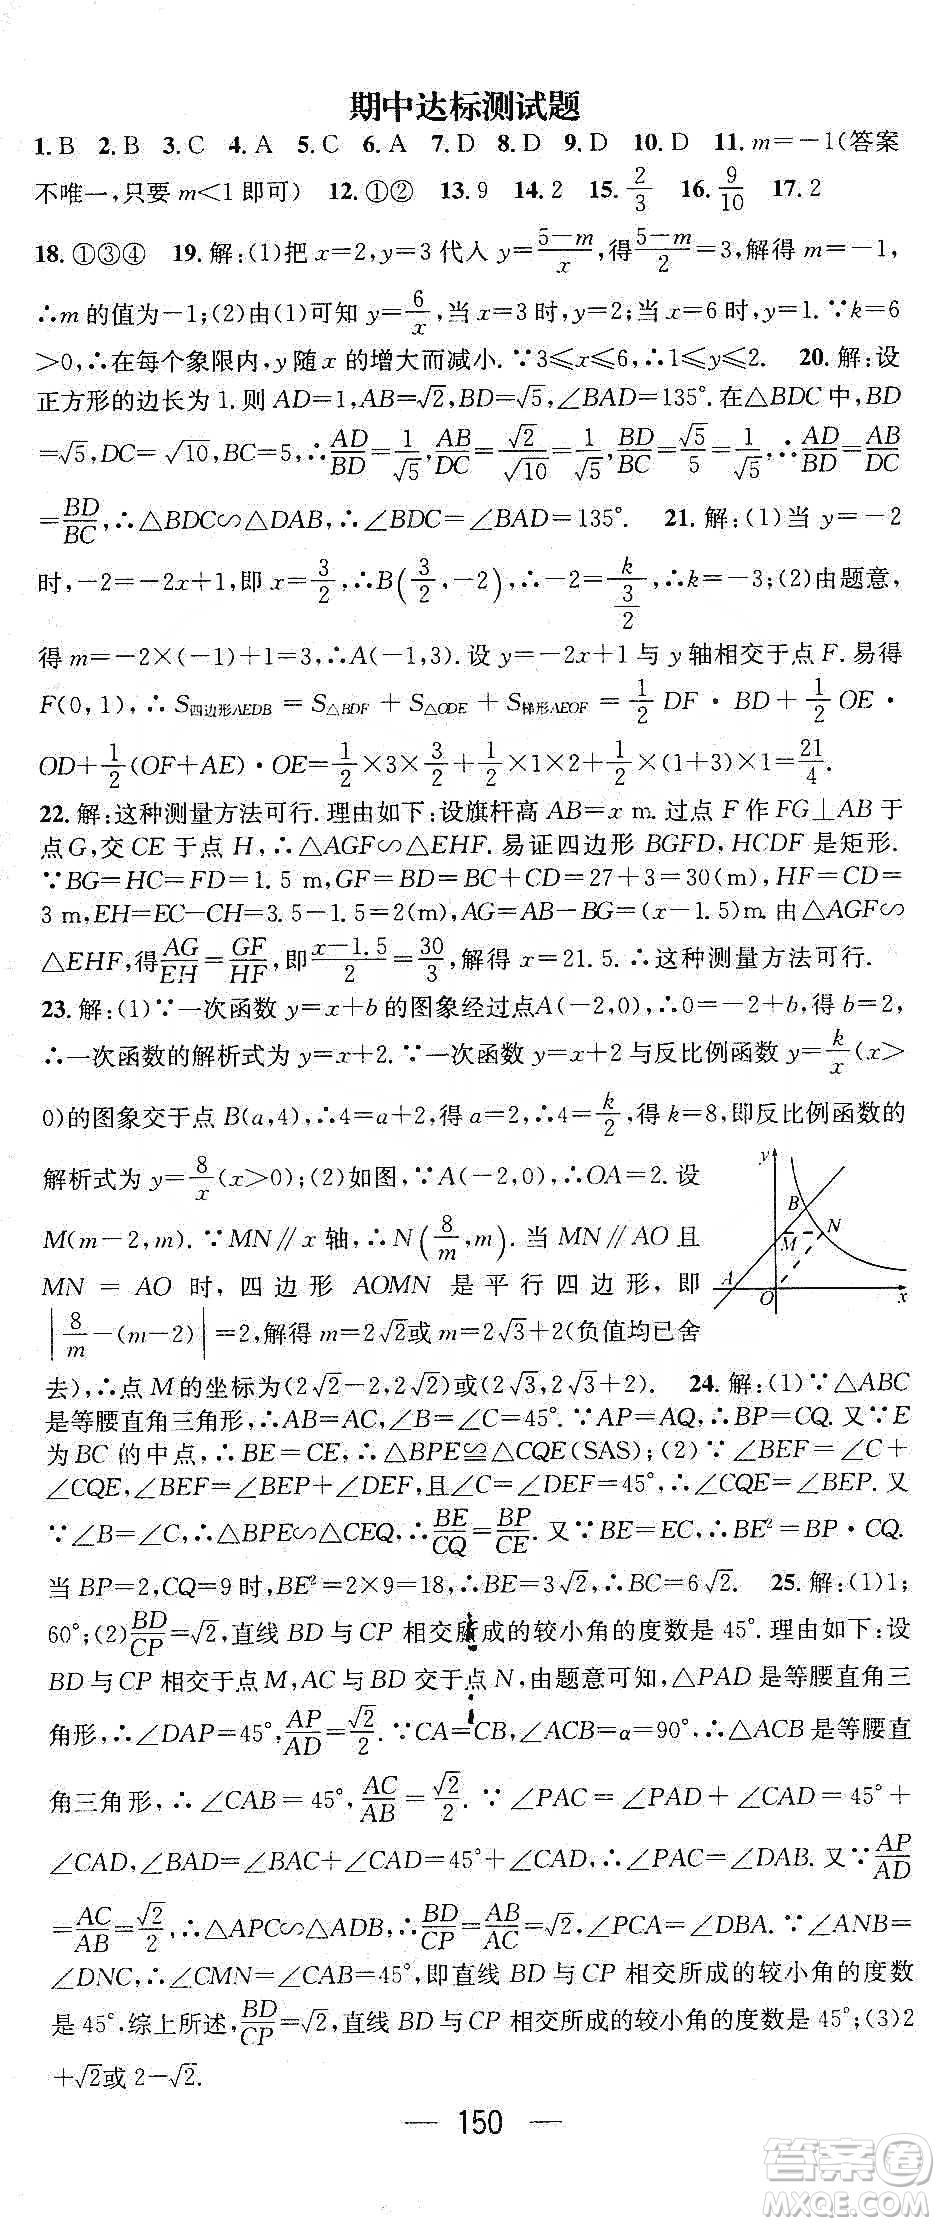 期中达标测试题
1.B 2.B 3.C 4.A 5.C 6.A 7.D 8.D 9.D 10.D 11.m=-1(答案
不唯一,只要m<1即可) 12.①② 13.9 14.2 15.2/3 16.9/10 17.2
18.①③④ 19.解:(1)把x=2,y=3代入y=(5-m)/x,得(5-m)/2=3,解得m=-1,
∴m的值为-1;(2)由(1)可知y=6/x,当x=3时,y=2;当x=6时,y=1.∵k=6
>0,∴在每个象限内,y随x的增大而减小.∵3≤x≤6,∴1≤y≤2. 20.解:设
正方形的边长为1.则AD=1,AB=√2,BD=√5,∠BAD=135°.在△BDC中,BD
=√5,DC=√10,BC=5,∴AD/BD=1/√5,AB/DC=√2/√10=1/√5,BD/BC=√5/5=1/√5,∴AD/BD=AB/DC
=BD/BC,∴△BDC∽△DAB,∴∠BDC=∠BAD=135°. 21.解:(1)当y=-2
时,-2=-2x+1,即x=3/2,∴B(3/2,-2),∴-2=k/(3/2),∴k=-3;(2)由题意,
得m=-2×(-1)+1=3,∴A(-1,3).设y=-2x+1与y轴相交于点F.易得
F(0,1),∴S四边形AEDB=S△BDF+S△ODE+S梯形AEOF=1/2DF·BD+1/2OE·
OD+1/2(OF+AE)·OE=1/2×3×3/2+1/2×1×2+1/2×(1+3)×1=21/4.
22.解:这种测量方法可行.理由如下:设旗杆高AB=x m.过点F作FG⊥AB于
点G,交CE于点H,∴△AGF∽△EHF.易证四边形BGFD,HCDF是矩形.
∵BG=HC=FD=1.5 m,GF=BD=BC+CD=27+3=30(m),HF=CD=
3 m,EH=EC-CH=3.5-1.5=2(m),AG=AB-BG=(x-1.5)m.由△AGF∽
△EHF,得AG/EH=GF/HF,即(x-1.5)/2=30/3,解得x=21.5.∴这种测量方法可行.
23.解:(1)∵一次函数y=x+b的图象经过点A(-2,0),∴0=-2+b,得b=2,
∴一次函数的解析式为y=x+2.∵一次函数y=x+2与反比例函数y=k/x(x>
0)的图象交于点B(a,4),∴4=a+2,得a=2,∴4=k/2,得k=8,即反比例函数的
解析式为y=8/x(x>0);(2)如图,∵A(-2,0),∴OA=2.设
M(m-2,m).∵MN∥x轴,∴N(8/m,m).当MN∥AO且
MN=AO时,四边形AOMN是平行四边形,即
|8/m-(m-2)|=2,解得m=2√2或m=2√3+2(负值均已舍
去),∴点M的坐标为(2√2-2,2√2)或(2√3,2√3+2). 24.解:(1)∵△ABC
是等腰直角三角形,∴AB=AC,∠B=∠C=45°.∵AP=AQ,∴BP=CQ.又∵E
为BC的中点,∴BE=CE,∴△BPE≌△CQE(SAS);(2)∵∠BEF=∠C+
∠CQE,∠BEF=∠BEP+∠DEF,且∠C=∠DEF=45°,∴∠CQE=∠BEP.又
∵∠B=∠C,∴△BPE∽△CEQ,∴BE/CQ=BP/CE.又∵BE=EC,∴BE²=BP·CQ.
当BP=2,CQ=9时,BE²=2×9=18,∴BE=3√2,∴BC=6√2. 25.解:(1)1;
60°;(2)BD/CP=√2,直线BD与CP相交所成的较小角的度数是45°.理由如下:设
BD与CP相交于点M,AC与BD交于点N,由题意可知,△PAD是等腰直角三
角形,∴∠DAP=45°,AP/AD=√2/2.∵CA=CB,∠ACB=α=90°,∴△ACB是等腰直
角三角形,∴∠CAB=45°,AC/AB=√2/2.∵∠PAC=∠PAD+∠CAD=45°+
∠CAD,∠BAD=∠BAC+∠CAD=45°+∠CAD,∴∠PAC=∠DAB.又∵AP/AD
=AC/AB=√2/2,∴△APC∽△ADB,∴BD/CP=AB/AC=√2,∠PCA=∠DBA.∵∠ANB=
∠DNC,∴∠CMN=∠CAB=45°,即直线BD与CP相交所成的较小角的度数
是45°.综上所述,BD/CP=√2,直线BD与CP相交所成的较小角的度数是45°;(3)2
+√2或2-√2.
y
B
M
N
A
O
x
— 150 —
答案圈
MXQE.COM